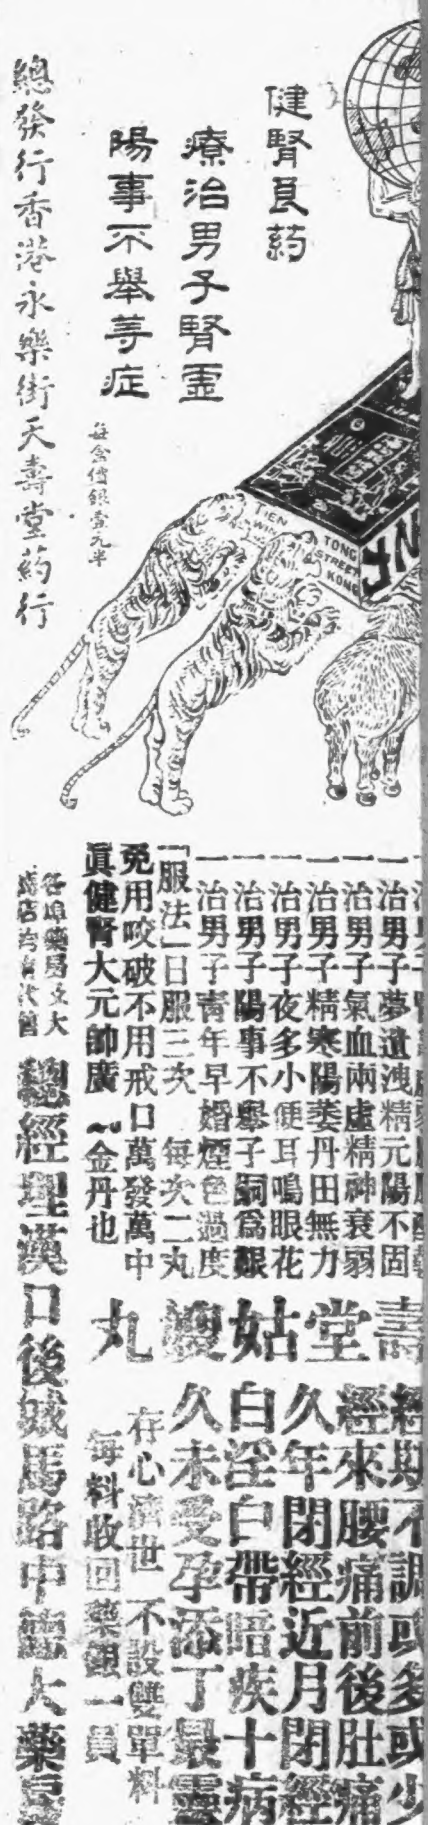 健腎良药
療治男子腎虛
陽事不舉等症
每盒價銀壹元半
總發行香港永樂街天壽堂药行
TIEN
TONG
STREET
KONG
一治男子夢遺洩精元陽不固
一治男子氣血兩虛精神衰弱
一治男子精寒陽萎丹田無力
一治男子夜多小便耳鳴眼花
一治男子陽事不舉子嗣爲艱
一治男子靑年早婚煙色過度
「服法」日服三次 每次二丸
免用咬破不用戒口萬發萬中
眞健腎大元帥廣 金丹也
壽堂姑嫂丸
經期不調或多或少
經來腰痛前後肚痛
久年閉經近月閉經
白淫白帶暗疾十病
久未受孕添丁最靈
存心濟世 不設雙單料
每料收回藥銀一員
各埠藥局及大
總經理漢口後城馬路中 大藥房